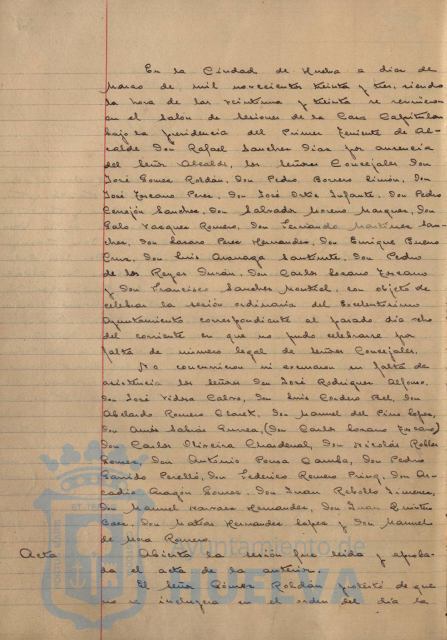 En la Ciudad de Huelva a diez de
Marzo de mil novecientos treinta y tres, siendo
la hora de las veintiuna y treinta se reunieron
en el Salón de sesiones de la Casa Capitular
bajo la presidencia del Primer Teniente de Al-
calde Don Rafael Sanchez Diaz por ausencia
del Señor Alcalde, los Señores Concejales Don
José Gomez Roldán, Don Pedro Borrero Limón, Don
José Toscano Perez, Don José Ortiz Infante, Don Pedro
Cerejón Sanchez, Don Salvador Moreno Marquez, Don
Galo Vazquez Romero, Don Fernando Martinez San-
chez, Don Lazaro Perez Hernandez, Don Enrique Bueno
Cruz, Don Luis Don Pedro
de los Reyes Durán, Don Carlos Lozano Toscano
y Don Francisco Sanchez con objeto de
celebrar la sesión ordinaria del Excelentísimo
Ayuntamiento correspondiente al pasado dia ocho
del corriente en que no pudo celebrarse por
falta de número legal de Señores Concejales.
No concurrieron ni excusaron su falta de
asistencia los señores Don José Rodriguez Alfonso,
Don José Vidosa Calvo, Don Luis Cordero Bel, Don
Abelardo Romero Claret, Don Manuel del Pino Lopez,
Don Amós Sabrás Gurrea, (Don Carlos Lozano Toscano)
Don Carlos Oliveira Chardenal, Don Nicolás Robles
Gomez, Don Antonio Ponsa Camba, Don Pedro
Garrido Perelló, Don Federico Romero Don Ar-
cadio Aragón Gomez, Don Juan Rebollo Jimenez,
Don Manuel Navarro Hernandez, Don Juan Quintero
Baez, Don Matías Hernandez Lopez y Don Manuel
de Mora Romero.
Acta Abierta la sesión fue leida y aproba-
da el acta de la anterior.
El Señor Gómez Roldán protestó de que
no se incluyera en el orden del día la
Ayuntamiento de
HUELVA